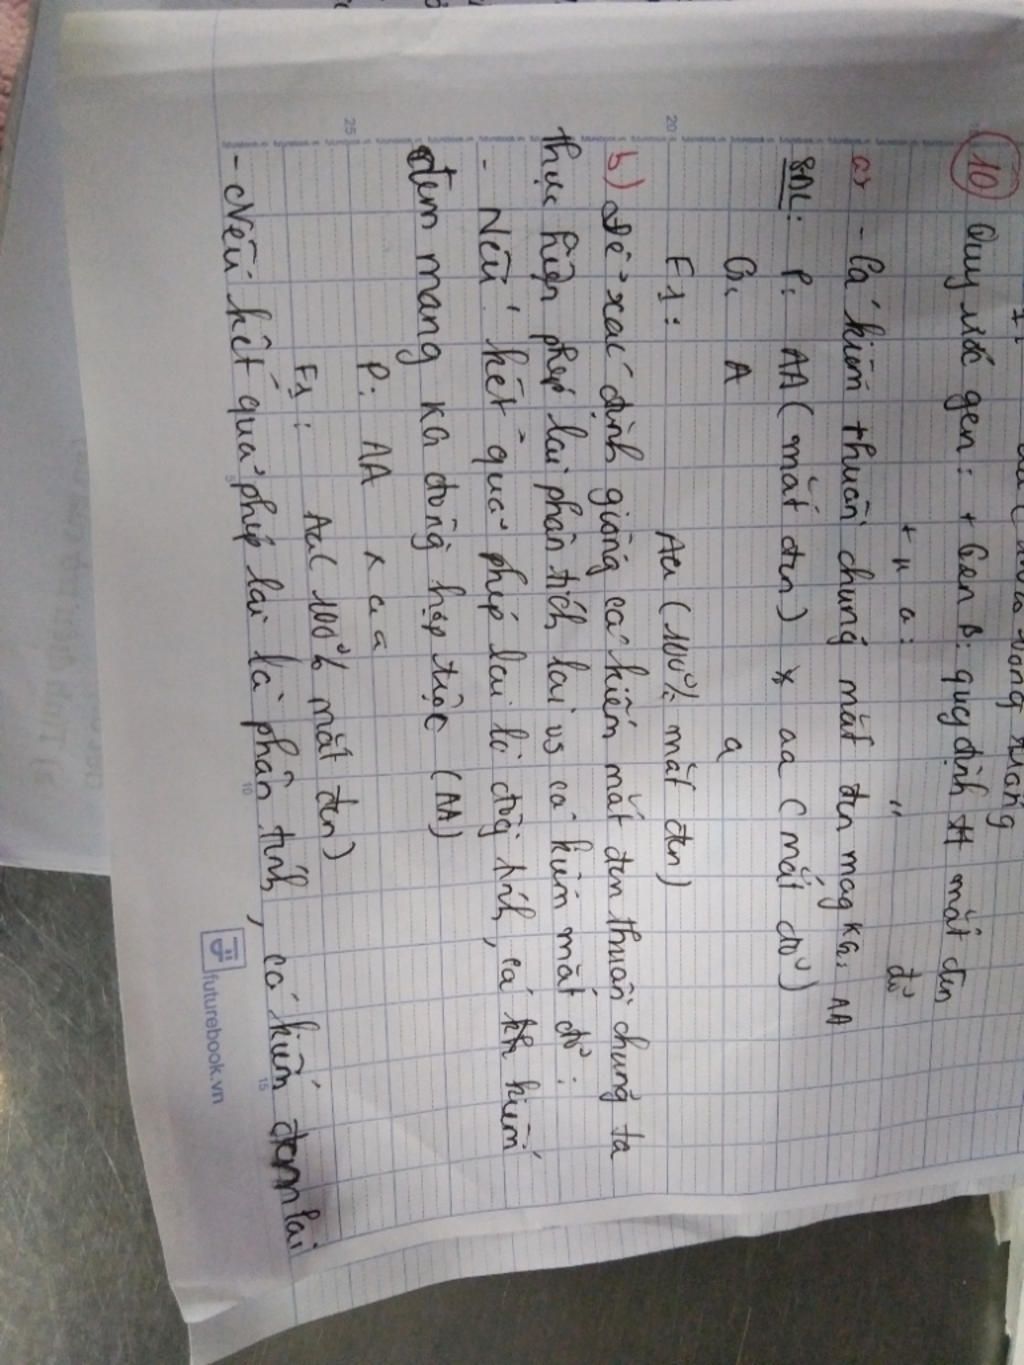 10 Quy ước gen: + Gen B: quy định tt mắt đen
+ n a: " đỏ
a, - Cá kiếm thuần chủng mắt đen mag KG: AA
SĐL: P: AA (mắt đen) x aa (mắt đỏ)
G: A a
F1: Aa (100% mắt đen)
b) Để xác định giống cá kiếm mắt đen thuần chủng ta
thực hiện phép lai phân tích lai vs cá kiếm mắt đỏ:
- Nếu kết quả phép lai là đồg tính, cá kiếm
đem mang KG đồng hợp trội (AA)
P: AA x aa
F1: Aa (100% mắt đen)
- Nếu kết quả phép lai là phân tính, cá kiếm đem lai
20
25
5
10
15
futurebook.vn